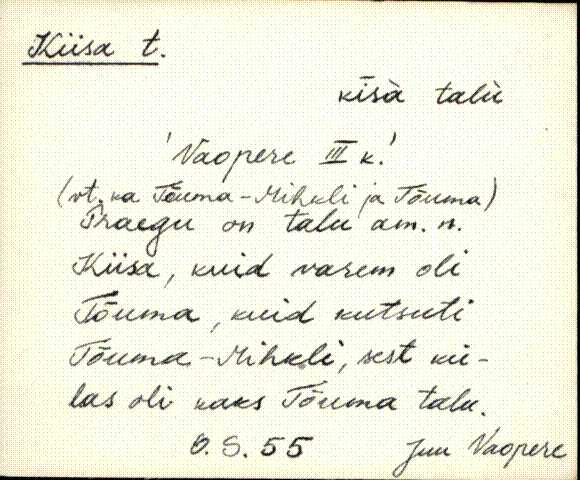 Kiisa t.
kīsà talù
'Vaopere III k.'
(vt. ka Tõuma-Mihkli ja Tõuma)
Praegu on talu am. n.
Kiisa, kuid varem oli
Tõuma, kuid kutsuti
Tõuma-Mihkli, sest kü-
las oli kaks Tõuma talu.
O. S. 55 Juu Vaopere